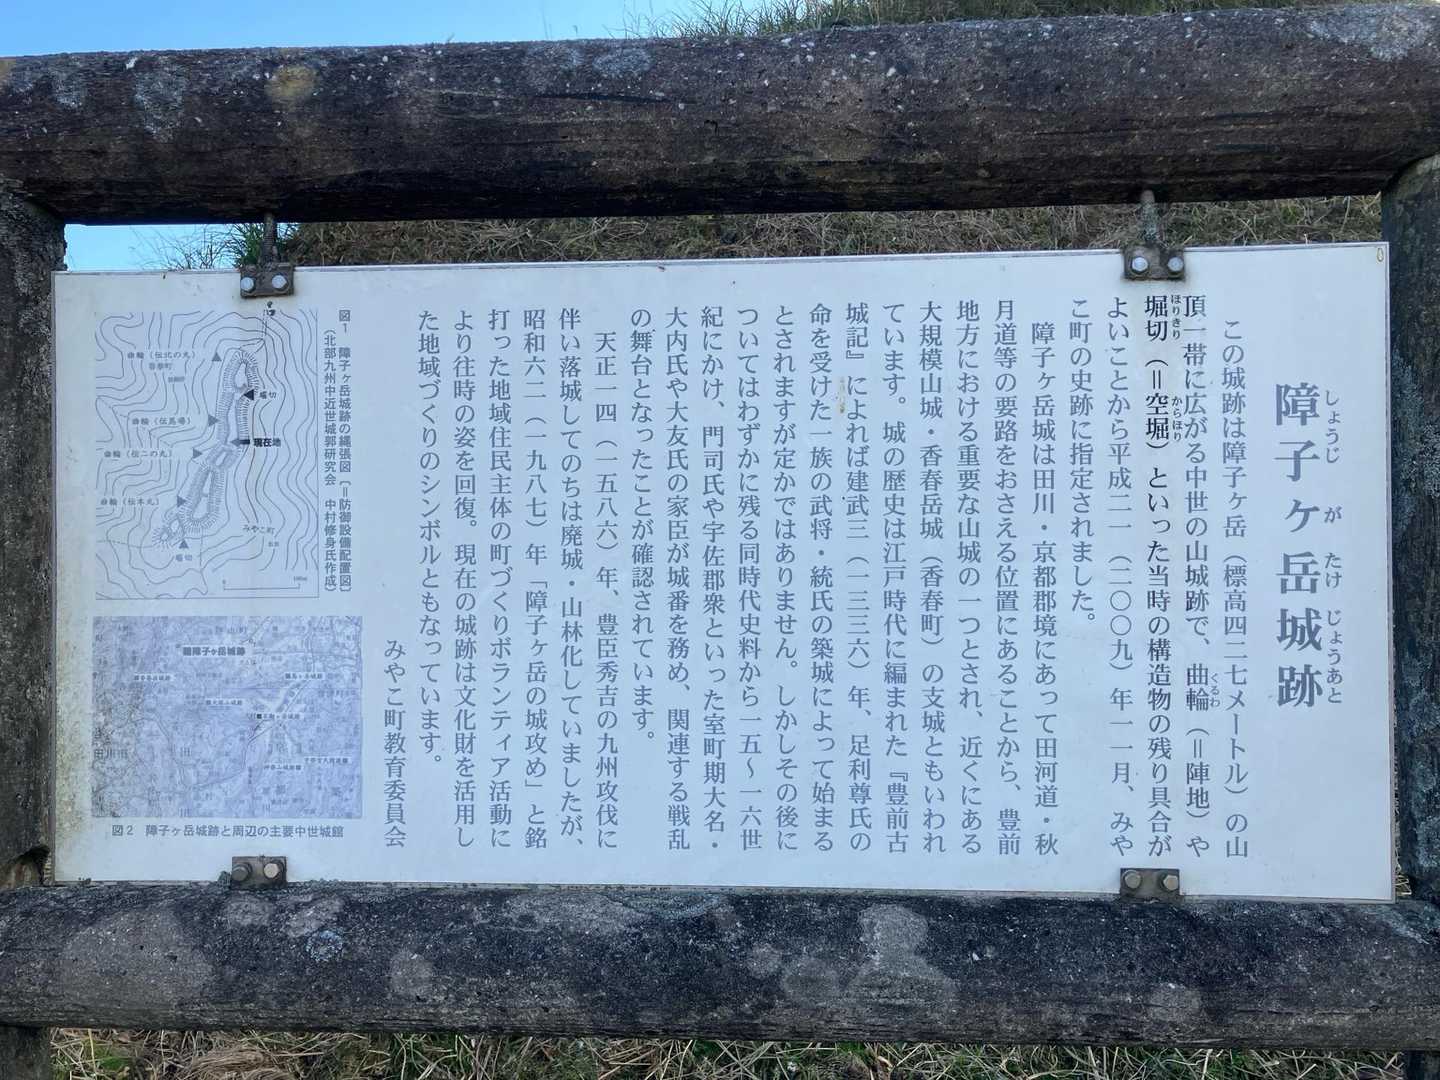 障子ヶ岳城跡
しょうじ が たけ じょうあと
この城跡は障子ヶ岳(標高四二七メートル)の山
頂一帯に広がる中世の山城跡で、曲輪(=陣地)や
くるわ
堀切(=空堀)といった当時の構造物の残り具合が
ほりきり からほり
よいことから平成二一(二〇〇九)年一一月、みや
こ町の史跡に指定されました。
障子ヶ岳城は田川・京都郡境にあって田河道・秋
月道等の要路をおさえる位置にあることから、豊前
地方における重要な山城の一つとされ、近くにある
大規模山城・香春岳城(香春町)の支城ともいわれ
ています。城の歴史は江戸時代に編まれた『豊前古
城記』によれば建武三(一三三六)年、足利尊氏の
命を受けた一族の武将・統氏の築城によって始まる
とされますが定かではありません。しかしその後に
ついてはわずかに残る同時代史料から一五~一六世
紀にかけ、門司氏や宇佐郡衆といった室町期大名・
大内氏や大友氏の家臣が城番を務め、関連する戦乱
の舞台となったことが確認されています。
天正一四(一五八六)年、豊臣秀吉の九州攻伐に
伴い落城してのちは廃城・山林化していましたが、
昭和六二(一九八七)年「障子ヶ岳の城攻め」と銘
打った地域住民主体の町づくりボランティア活動に
より往時の姿を回復。現在の城跡は文化財を活用し
た地域づくりのシンボルともなっています。
みやこ町教育委員会
図1 障子ヶ岳城跡の縄張図〔=防御設備配置図〕
(北部九州中近世城郭研究会 中村修身氏作成)
曲輪(伝北の丸)
香春町
堀切
曲輪(伝馬場)
現在地
曲輪(伝二の丸)
曲輪(伝本丸)
みやこ町
堀切
0 100m
障子ヶ岳城跡
図2 障子ヶ岳城跡と周辺の主要中世城館